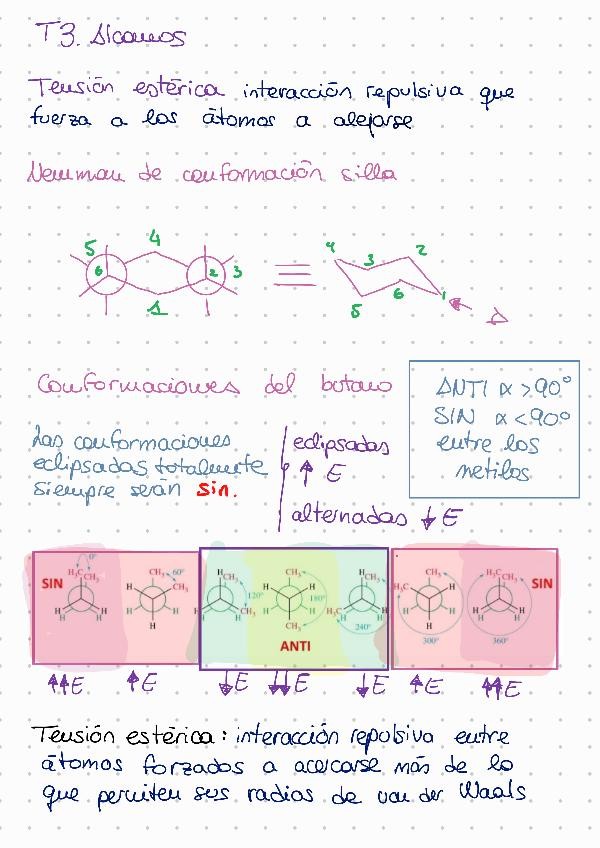 T3. Alcanos
Tensión estérica interacción repulsiva que
fuerza a los átomos a alejarse
Newman de conformación silla
5 4 6 2 3 1
4 3 2 5 6 1
Conformaciones del butano
ANTI α > 90°
SIN α < 90°
entre los
metilos
Las conformaciones
eclipsadas totalmente
siempre serán sin.
eclipsadas
↑ E
alternadas ↓ E
0° 60° 120° 180° 240° 300° 360°
SIN H₃C CH₃ H H H H
CH₃ CH₃ H H H H
H CH₃ H H
CH₃ H H H H CH₃
H CH₃ H₃C H H
CH₃ H₃C H H H
H₃C CH₃ H H H H SIN
ANTI
↑↑E ↑E ↓E ↓↓E ↓E ↑E ↑↑E
Tensión estérica: interacción repulsiva entre
átomos forzados a acercarse más de lo
que permiten sus radios de van der Waals